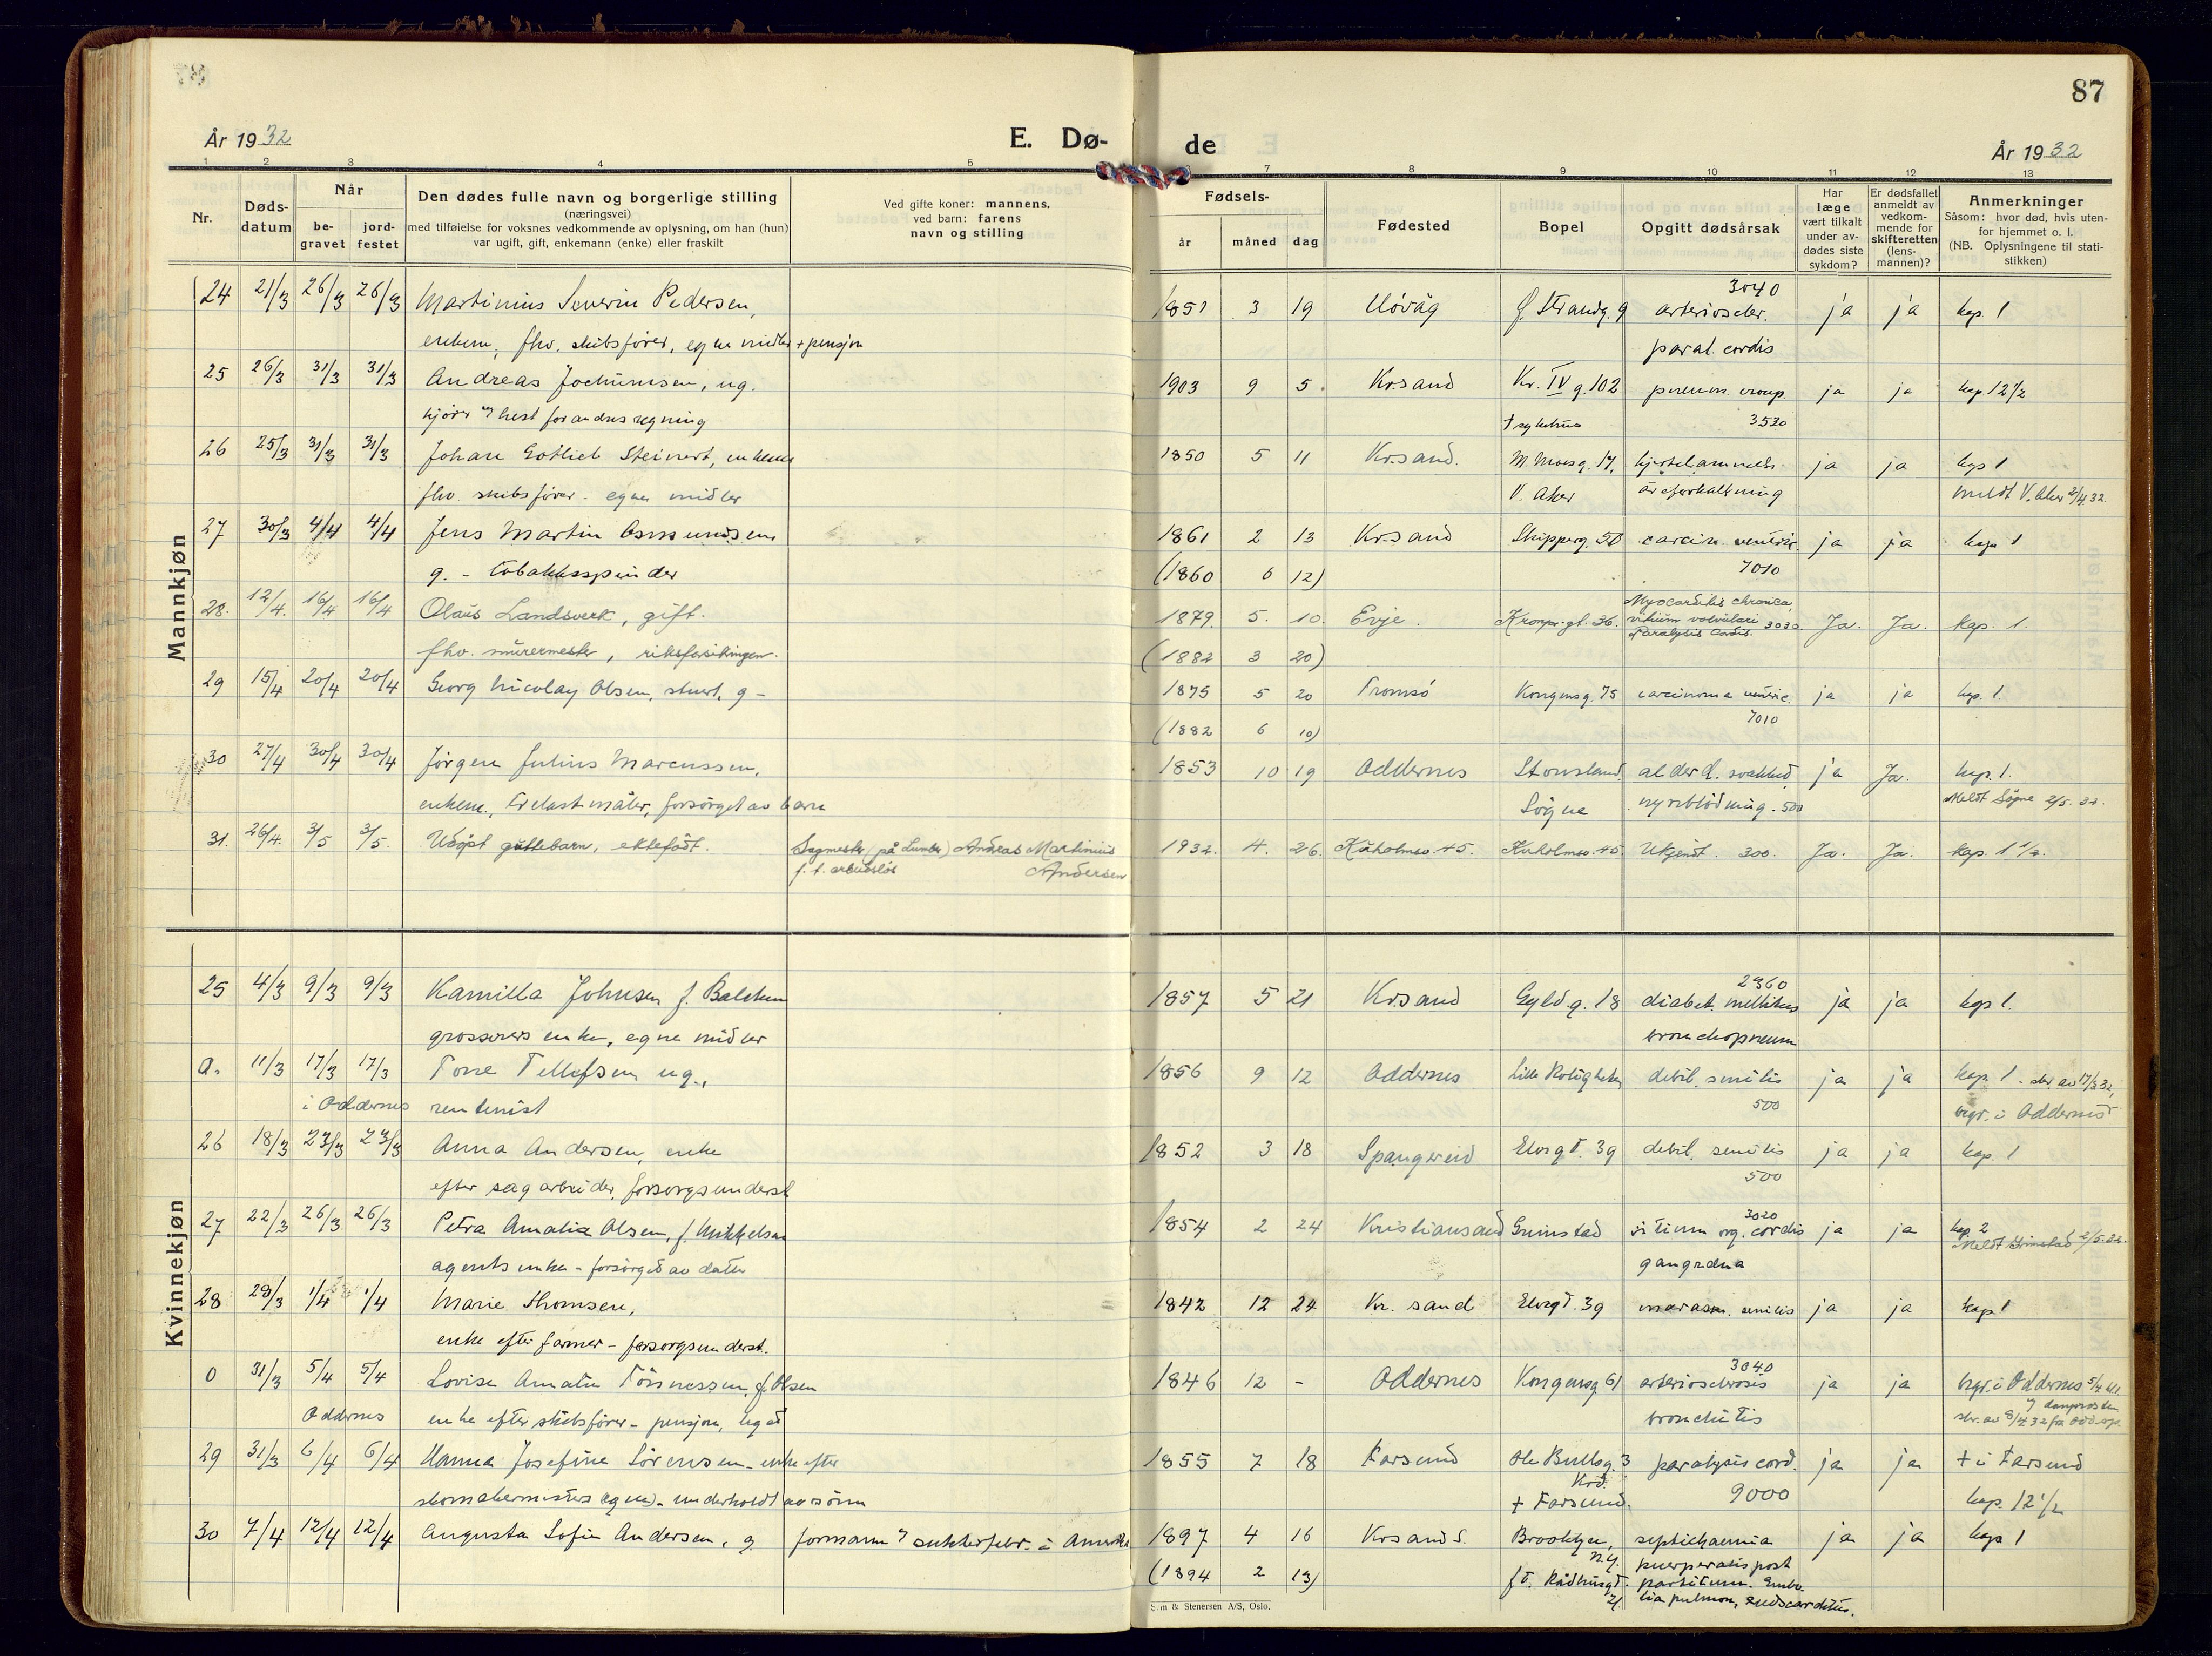 87
År 1932
E. Dø-
de
År 1932
1 2 3 4 5 7 8 9 10 11 12 13
Nr.
Døds-
datum
Når
be-
gravet
jord-
festet
Den dødes fulle navn og borgerlige stilling
(næringsvei)
med tilføielse for voksnes vedkommende av oplysning, om han (hun)
var ugift, gift, enkemann (enke) eller fraskilt
Ved gifte koner: mannens,
ved barn: farens
navn og stilling
Fødsels-
år måned dag
Fødested
Bopel
Opgitt dødsårsak
Har
læge
vært tilkalt
under av-
dødes siste
sykdom?
Er dødsfallet
anmeldt av
vedkom-
mende for
skifteretten
(lens-
mannen)?
Anmerkninger
Såsom: hvor død, hvis uten-
for hjemmet o. l.
(NB. Oplysningene til stati-
stikken)
Mannkjøn
3040
24 21/3 26/3 26/3 Martinius Severin Pedersen, 1851 3 19 Høvåg Ø. Strandg. 9 arterioscler. ja ja kap. 1
enkem., fhv. skibsfører, egne midler + pensjon paral. cordis
25 26/3 31/3 31/3 Andreas Jochumsen, ug. 1903 9 5 Kr.sand Kr. IV g. 102 pneum. croup. ja ja kap. 12 1/2
kjører hest for andres regning † sykehus 3520
26 25/3 31/3 31/3 Johan Gotlieb Steinert, enkem. 1850 5 11 Kr.sand. M. Moesg. 17, ja ja kap 1
fhv. skibsfører - egne midler V. Aker åreforkalkning meldt V. Aker 2/4 32.
27 30/3 4/4 4/4 Jens Martin Osmundsen 1861 2 13 Kr.sand Skipperg. 50 carcin. ventric. ja ja kap 1
g. - tobakksspinder (1860 6 12) 7010
28. 12/4. 16/4 16/4 Olaus Landsverk, gift. 1879. 5. 10. Evje. Kronpr. gt. 36. Myocarditis chronica, Ja. Ja. kap. 1.
vitium valvulari 3030.
Paralysis cordis.
fhv. murermester, riksforsikringen. (1882 3 20)
29 15/4 20/4 20/4 Georg Nicolay Olsen, stuert, g - 1875 5 20 Tromsø Kongensg. 75 carcinoma ventric. ja ja kap. 1.
(1882 6 10) 7010
30 27/4 30/4 30/4 Jørgen Julius Marcussen, 1853 10 19 Oddernes alderd. svakhed ja Ja. kap. 1.
enkem., trelastmåler, forsørget av barn Søgne nyreblødning - 500 Meldt Søgne 2/5. 32.
31. 26/4. 3/5 3/5. Udøpt guttebarn, ektefødt. Sagmester (på Lumber) Andreas Martinius 1932. 4. 26. Kuholmsv. 45. Kuholmsv. 45 Ukjendt. 300. Ja. Ja. kap. 1 1/2.
f. t. arbeidsløs Andersen
Kvinnekjøn
2360
25 4/3 9/3 9/3 Kamilla Johnsen f. Balchen 1857 5 21 Kr.sand Gyld g. 18 diabet. mellitus ja ja kap 1.
grosserers enke, egne midler bronchopneum
a. 11/3 17/3 17/3 Tone Tellefsen ug., 1856 9 12 Oddernes Lille Roligheten debil. senilis ja ja kap. 1 - skr. av 17/3 32,
i Oddernes rentenist 500 begr. i Oddernes
26 18/3 23/3 23/3 Anna Andersen, enke 1852 3 18 Spangereid Elvegt. 39 debil. senilis ja ja kap. 1
efter sagarbeider, forsorgsunderst 500
3020
27 22/3 26/3 26/3 Petra Amalie Olsen, f. Mikkelsen 1854 2 24 Kristiansand Grimstad vitium org. cordis ja ja kap. 2
Meldt Grimstad 2/5. 32.
agents enke - forsørget av datter gangræna
28 28/3 1/4 1/4 Marie Thomsen, 1842 12 24 Kr. sand Elvegt. 39 marasm. senilis ja ja kap 1
enke efter farmer - forsorgsunderst.
3040
0 31/3 5/4 5/4 Lovise Amalie Tönnessen, f. Olsen 1846 12 - Oddernes Kongensg 61 arteriosclerosis ja ja begr. i Oddernes 5/4
Oddernes enke efter skibsfører - pensjon, legat bronchitis
29 31/3 6/4 6/4 Hanna Josefine Sörensen - enke efter 1855 7 18 Farsund Ole Bullsg. 3 paralysis cord. ja ja † i Farsund
Krd.
skomakermester - underholdt av sønn † Farsund. 9000 kap. 12 1/2
30 7/4 12/4 12/4 Augusta Sofie Andersen, g. formann sukkerfabr. i Amerika 1897 4 16 Kr.sand S. Brooklyn, septichaemia ja ja kap 1
N.Y. puerperalis post
(1894 2 13) f. t. Rådhusgt. partitum. Embo-
21. lia pulmon, endocarditis.
& Stenersen A/S, Oslo.